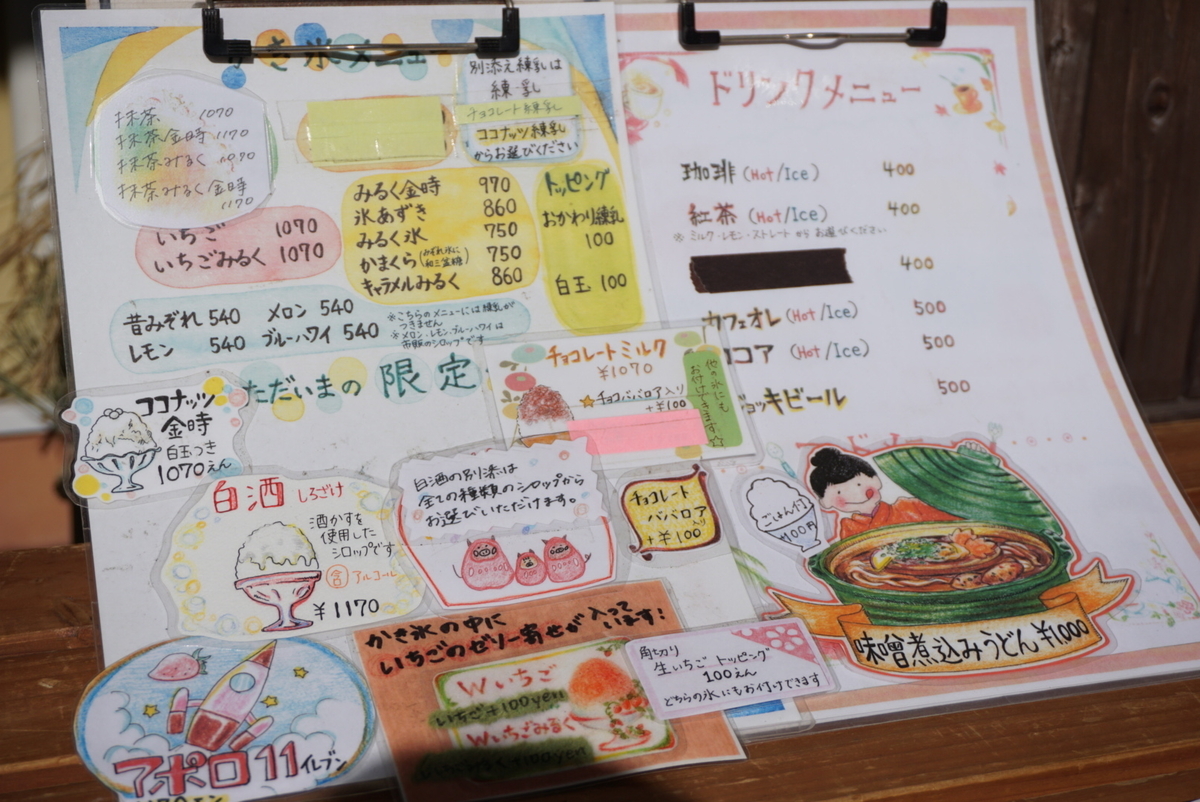 かき氷メニュー
別添え練乳は
練乳
チョコレート練乳
ココナッツ練乳
からお選びください
抹茶 1070
抹茶金時 1170
抹茶みるく 1090
抹茶みるく金時
1170
いちご 1070
いちごみるく 1070
みるく金時 970
氷あずき 860
みるく氷 750
かまくら(みぞれ氷に和三盆糖) 750
キャラメルみるく 860
トッピング
おかわり練乳
100
白玉 100
昔みぞれ 540 メロン 540
レモン 540 ブルーハワイ 540
※こちらのメニューには練乳が
つきません
※メロン・レモン・ブルーハワイは
市販のシロップです
ただいまの 限定
チョコレートミルク
¥1070
☆チョコババロア入り
+¥100
他の氷にも
お付けできます☆
ココナッツ
金時
白玉つき
1070えん
白酒 しろざけ
酒かすを
使用した
シロップです
含アルコール
¥1170
白酒の別添は
全ての種類のシロップから
お選びいただけます。
チョコレート
ババロア入り
+¥100
かき氷の中に
いちごのゼリー寄せが入って
います!
Wいちご
いちご+100yen
Wいちごみるく
+100yen
角切り
生いちごトッピング
100えん
どちらの氷にもお付けできます
アポロ11イレブン
ドリンクメニュー
珈琲 (Hot/Ice) 400
紅茶 (Hot/Ice) 400
※ミルク・レモン・ストレートからお選びください
400
カフェオレ (Hot/Ice) 500
ココア (Hot/Ice) 500
ジョッキビール 500
ごはん付
¥100円
味噌煮込みうどん ¥1000